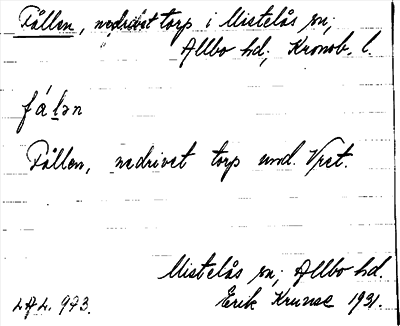 Fållen, nedrivet torp i Mistelås sn;
Allbo hd; Kronob. l.
fá̱lən
Fållen, nedrivet torp und. Vret.
Mistelås sn; Allbo hd.
L.A.L. 973. Erik Krunse 1931.